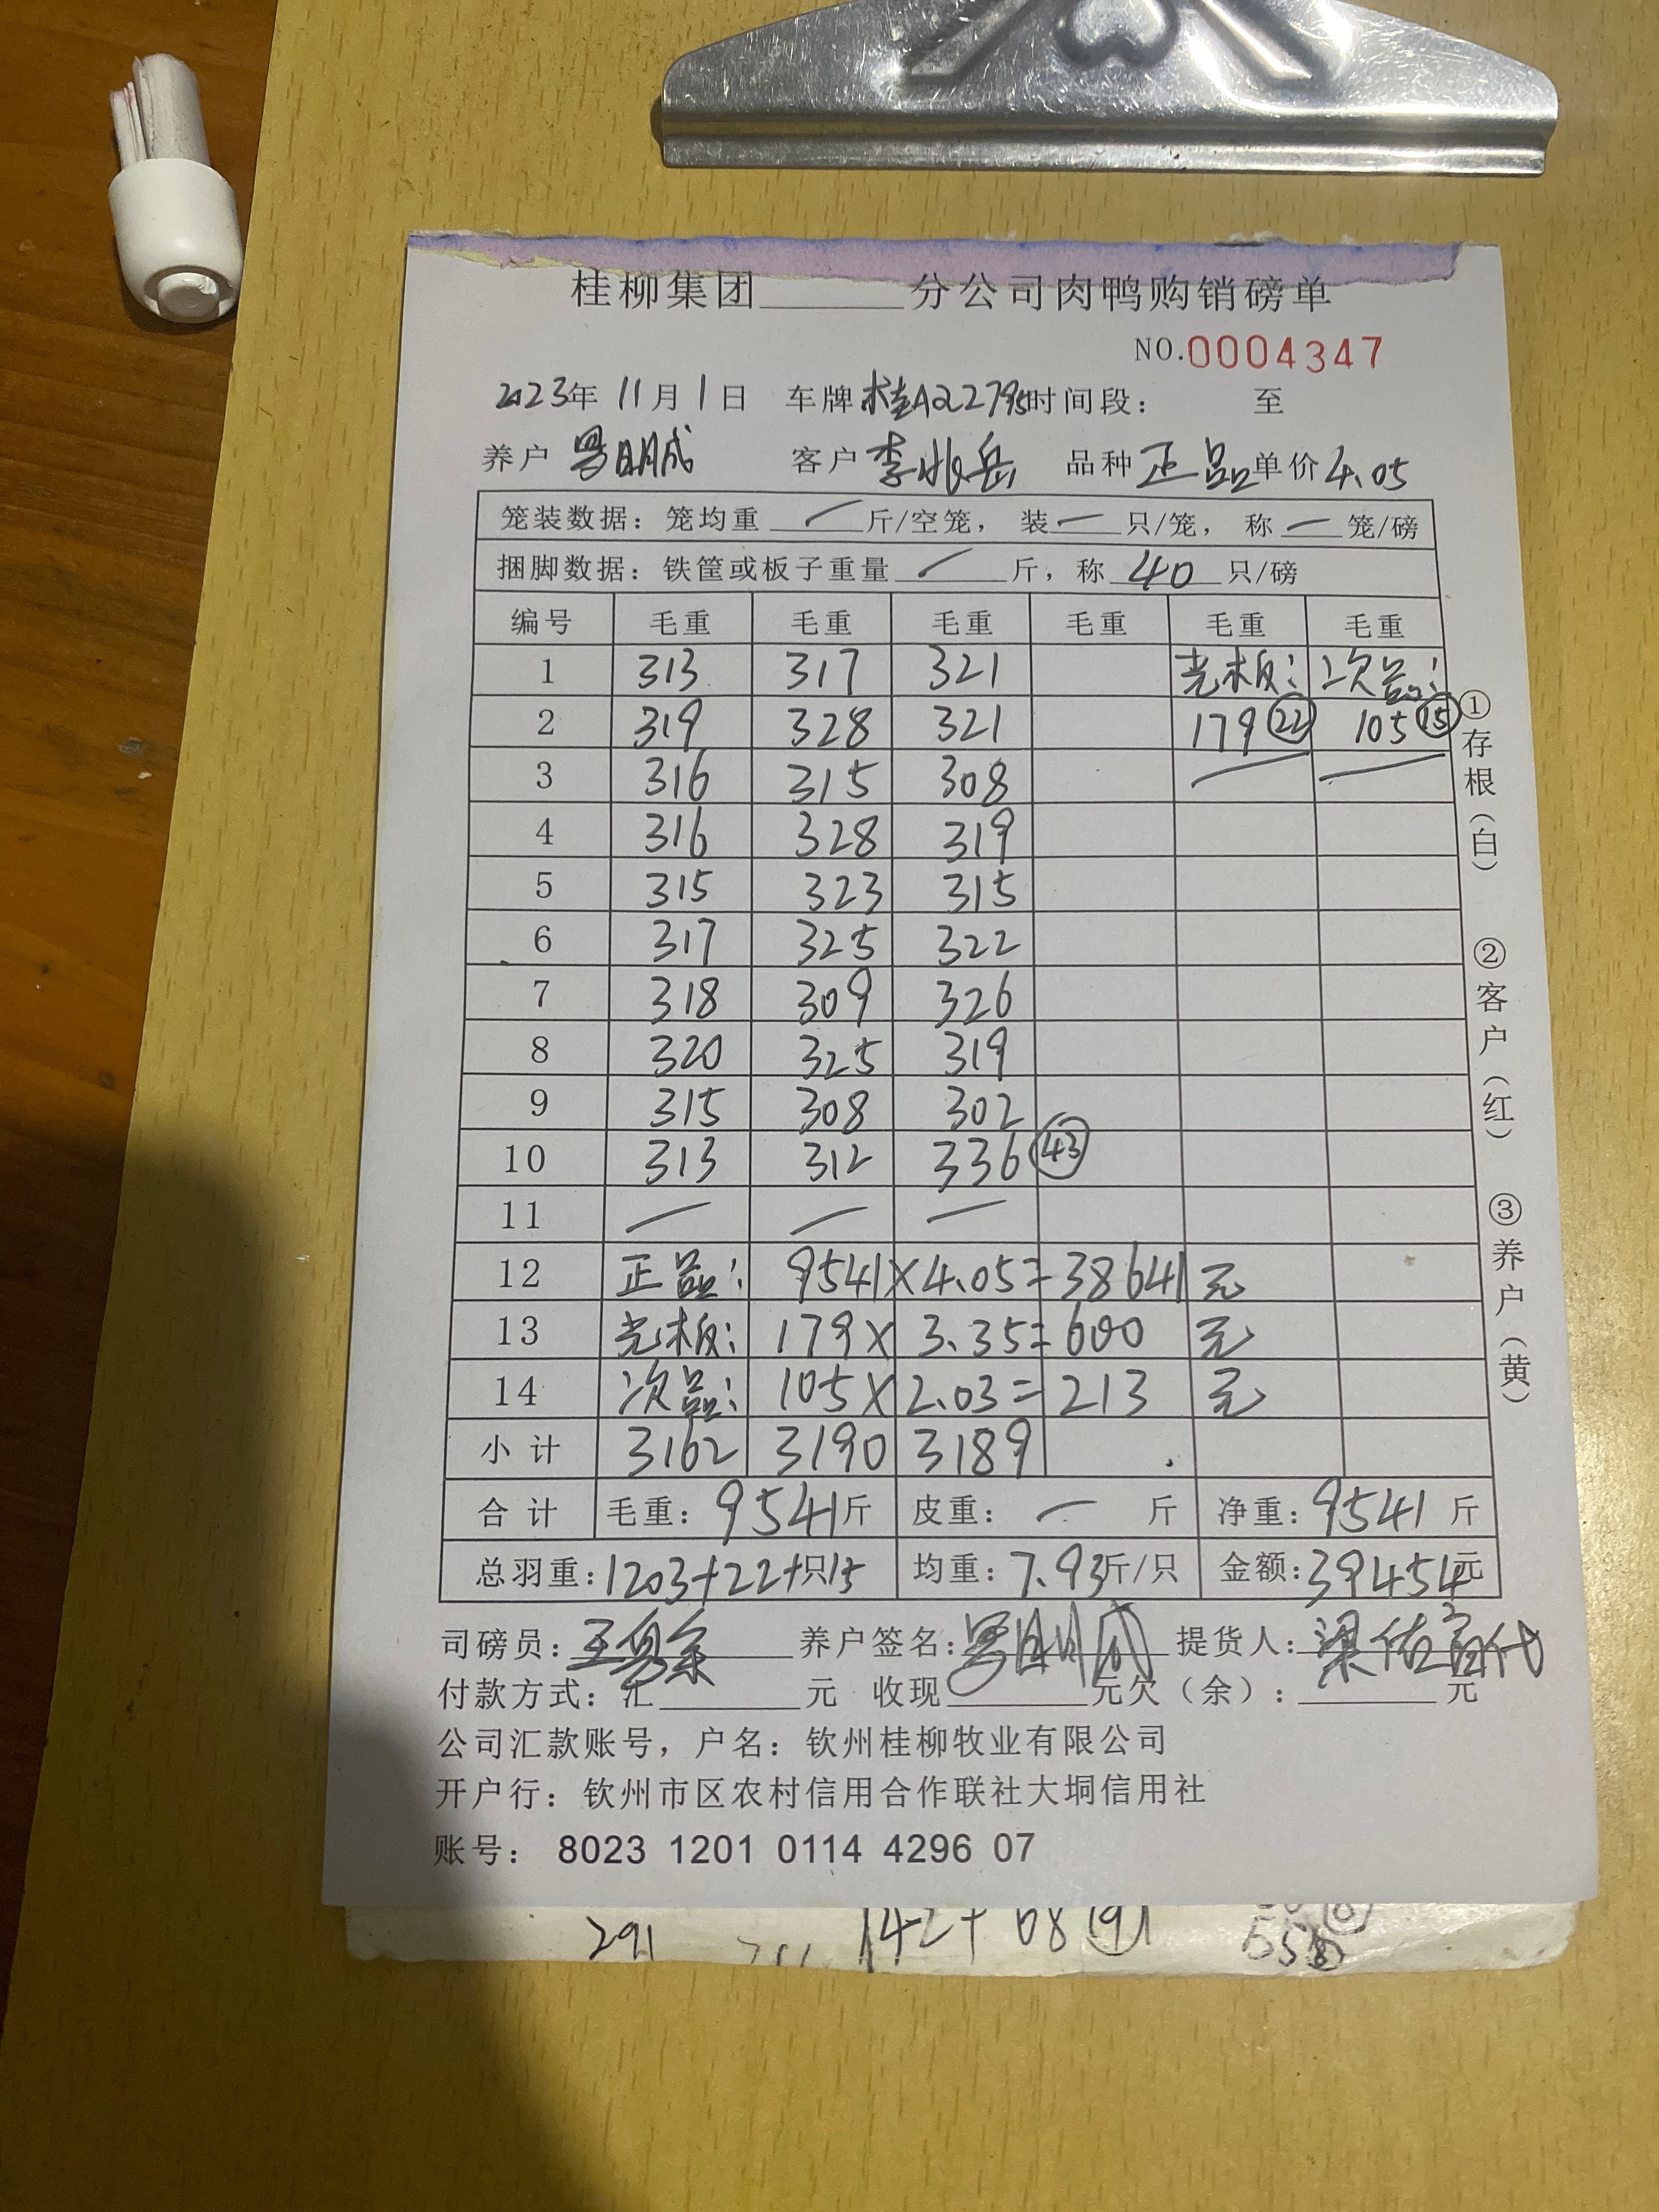 桂柳集团______分公司肉鸭购销磅单
NO.0004347
2023年 11月 1日 车牌 桂A22795 时间段： 至
养户 罗明成 客户 李兆岳 品种 正品 单价 4.05
笼装数据：笼均重 — 斤/空笼，装 — 只/笼，称 — 笼/磅
捆脚数据：铁筐或板子重量 — 斤，称 40 只/磅
编号 毛重 毛重 毛重 毛重 毛重 毛重
1 313 317 321 光板： 次品：
2 319 328 321 179 ㉒ 105 ⑮
3 316 315 308 — —
4 316 328 319
5 315 323 315
6 317 325 322
7 318 309 326
8 320 325 319
9 315 308 302
10 313 312 336 ㊸
11 — — —
12 正品： 9541×4.05=38641元
13 光板： 179×3.35=600元
14 次品： 105×2.03=213元
小计 3162 3190 3189
合计 毛重：9541斤 皮重：— 斤 净重：9541斤
总羽重：1203+22+只15 均重：7.93斤/只 金额：39454元
司磅员： 养户签名：罗明成 提货人：代
付款方式：汇______元 收现______元欠（余）：______元
公司汇款账号，户名：钦州桂柳牧业有限公司
开户行：钦州市区农村信用合作联社大垌信用社
账号： 8023 1201 0114 4296 07
①存根（白） ②客户（红） ③养户（黄）
291 142+68